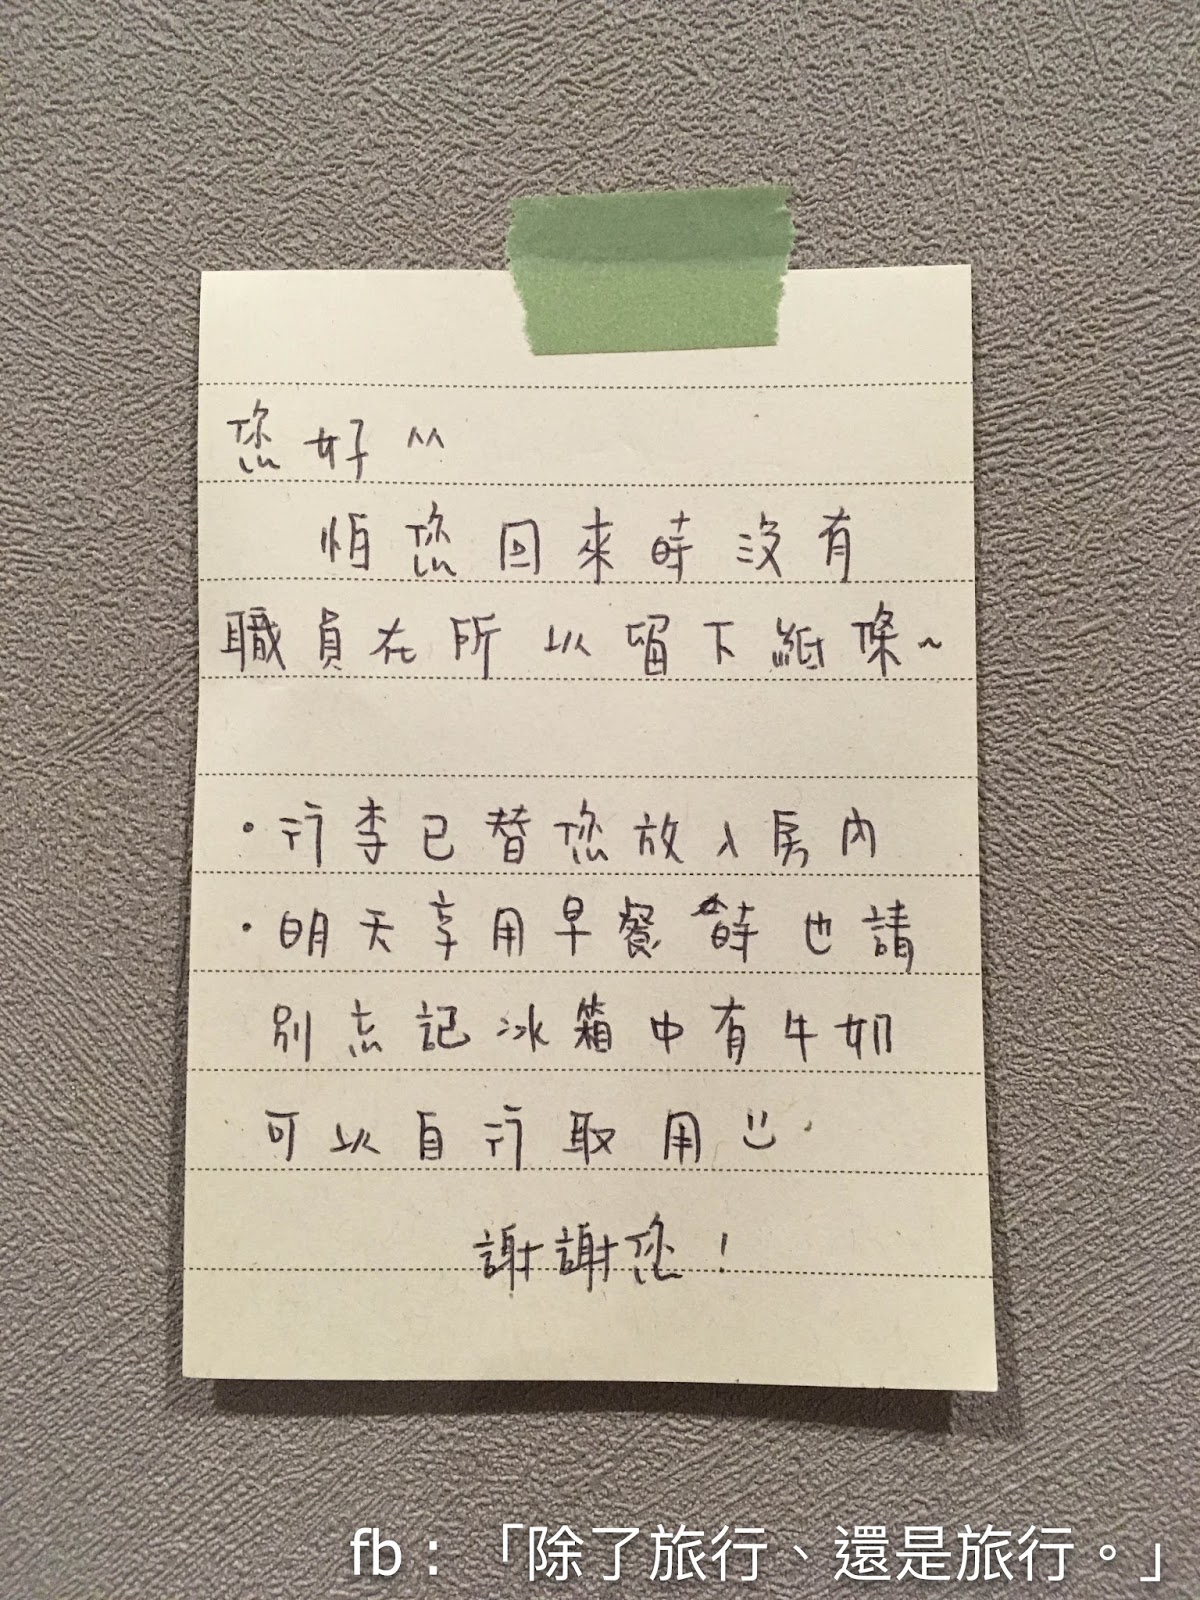 您好^^
怕您回來時沒有
職員在所以留下紙條~
・行李已替您放入房內
・明天享用早餐時也請
別忘記冰箱中有牛奶
可以自行取用
謝謝您！
fb：「除了旅行、還是旅行。」